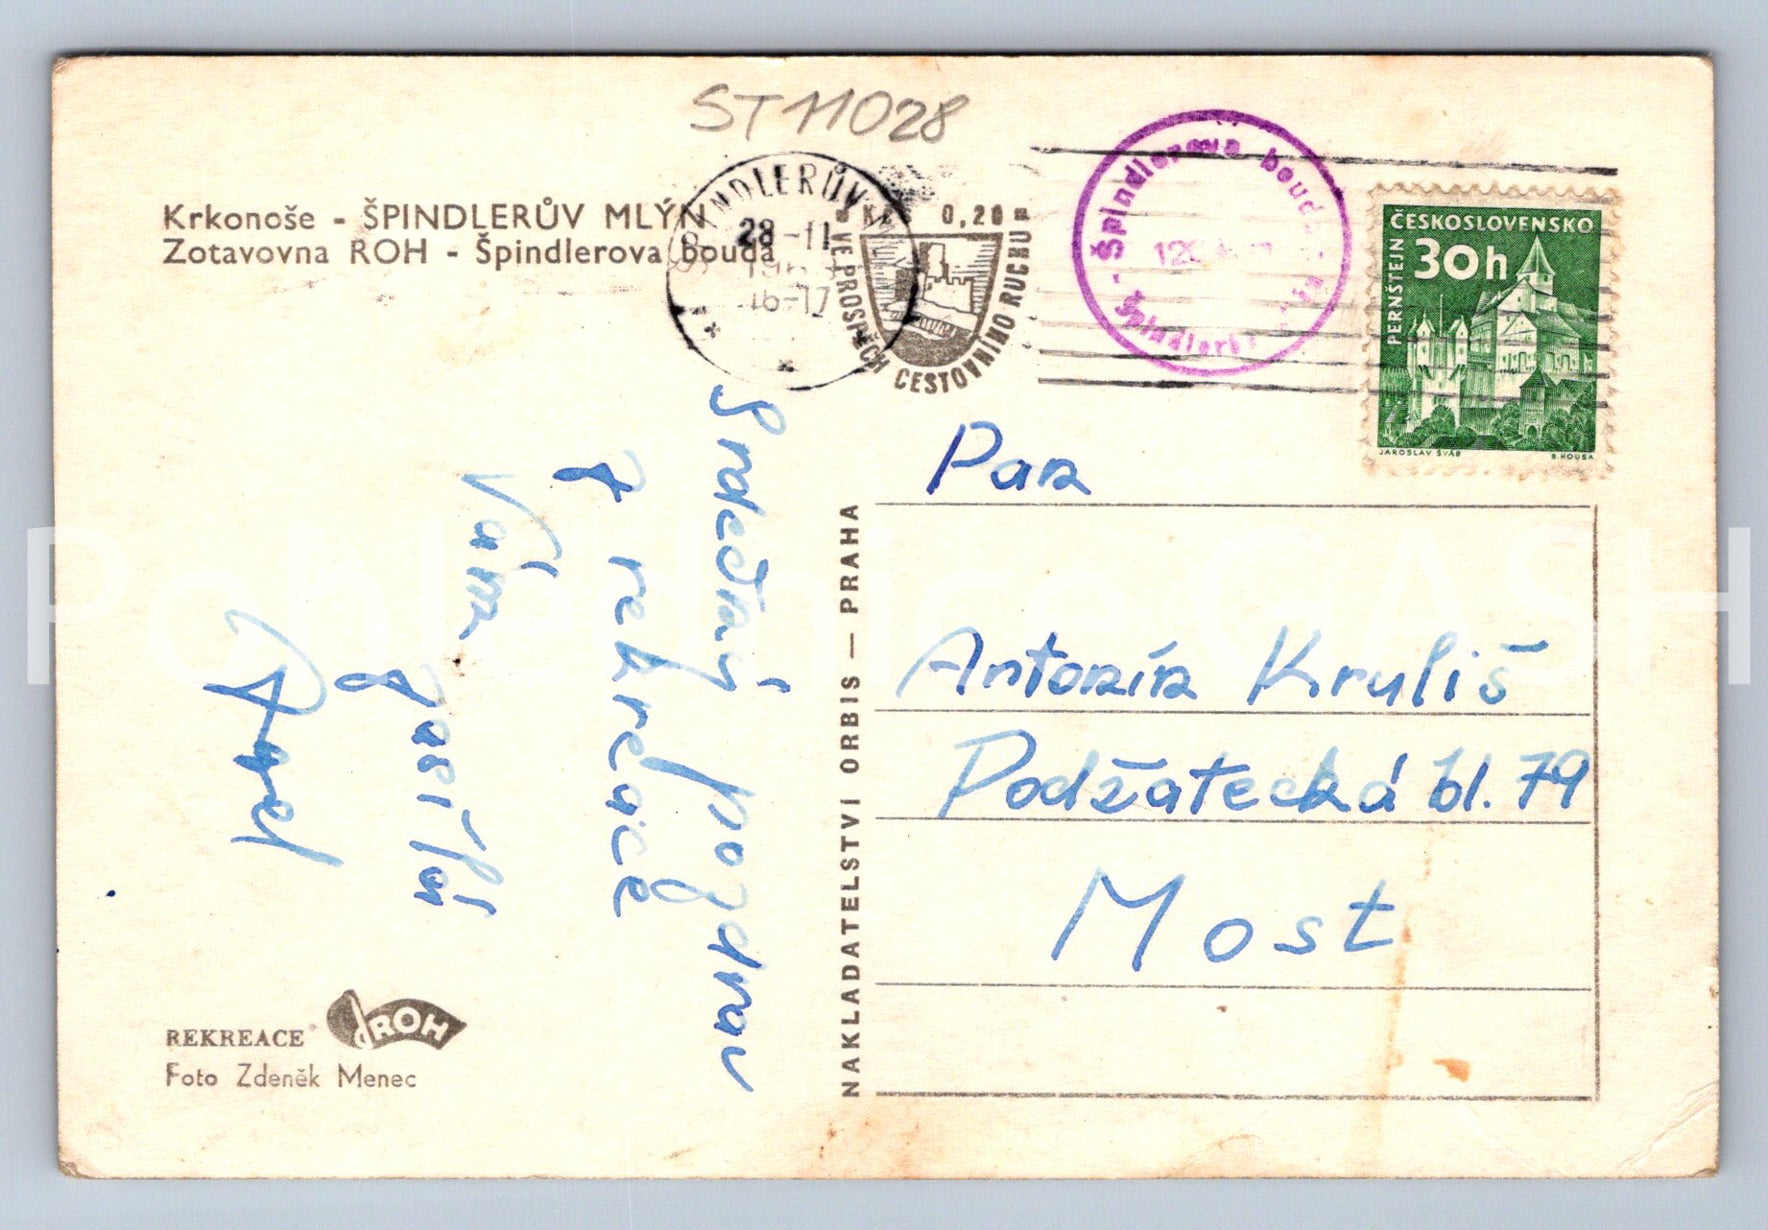 ST11028
Krkonoše - ŠPINDLERŮV MLÝN
Zotavovna ROH - Špindlerova bouda
ŠPINDLERŮV
28-11
16-17
KČS 0,20
VE PROSPĚCH CESTOVNÍHO RUCHU
Špindlerova bouda
ČESKOSLOVENSKO
30h
PERNŠTEJN
JAROSLAV ŠVÁB
B. HOUSA
Srdečný pozdrav
z rekreace
Vám
zasílá
Pan
Antonín Kruliš
Podžatecká bl. 79
Most
NAKLADATELSTVI ORBIS — PRAHA
REKREACE ROH
Foto Zdeněk Menec